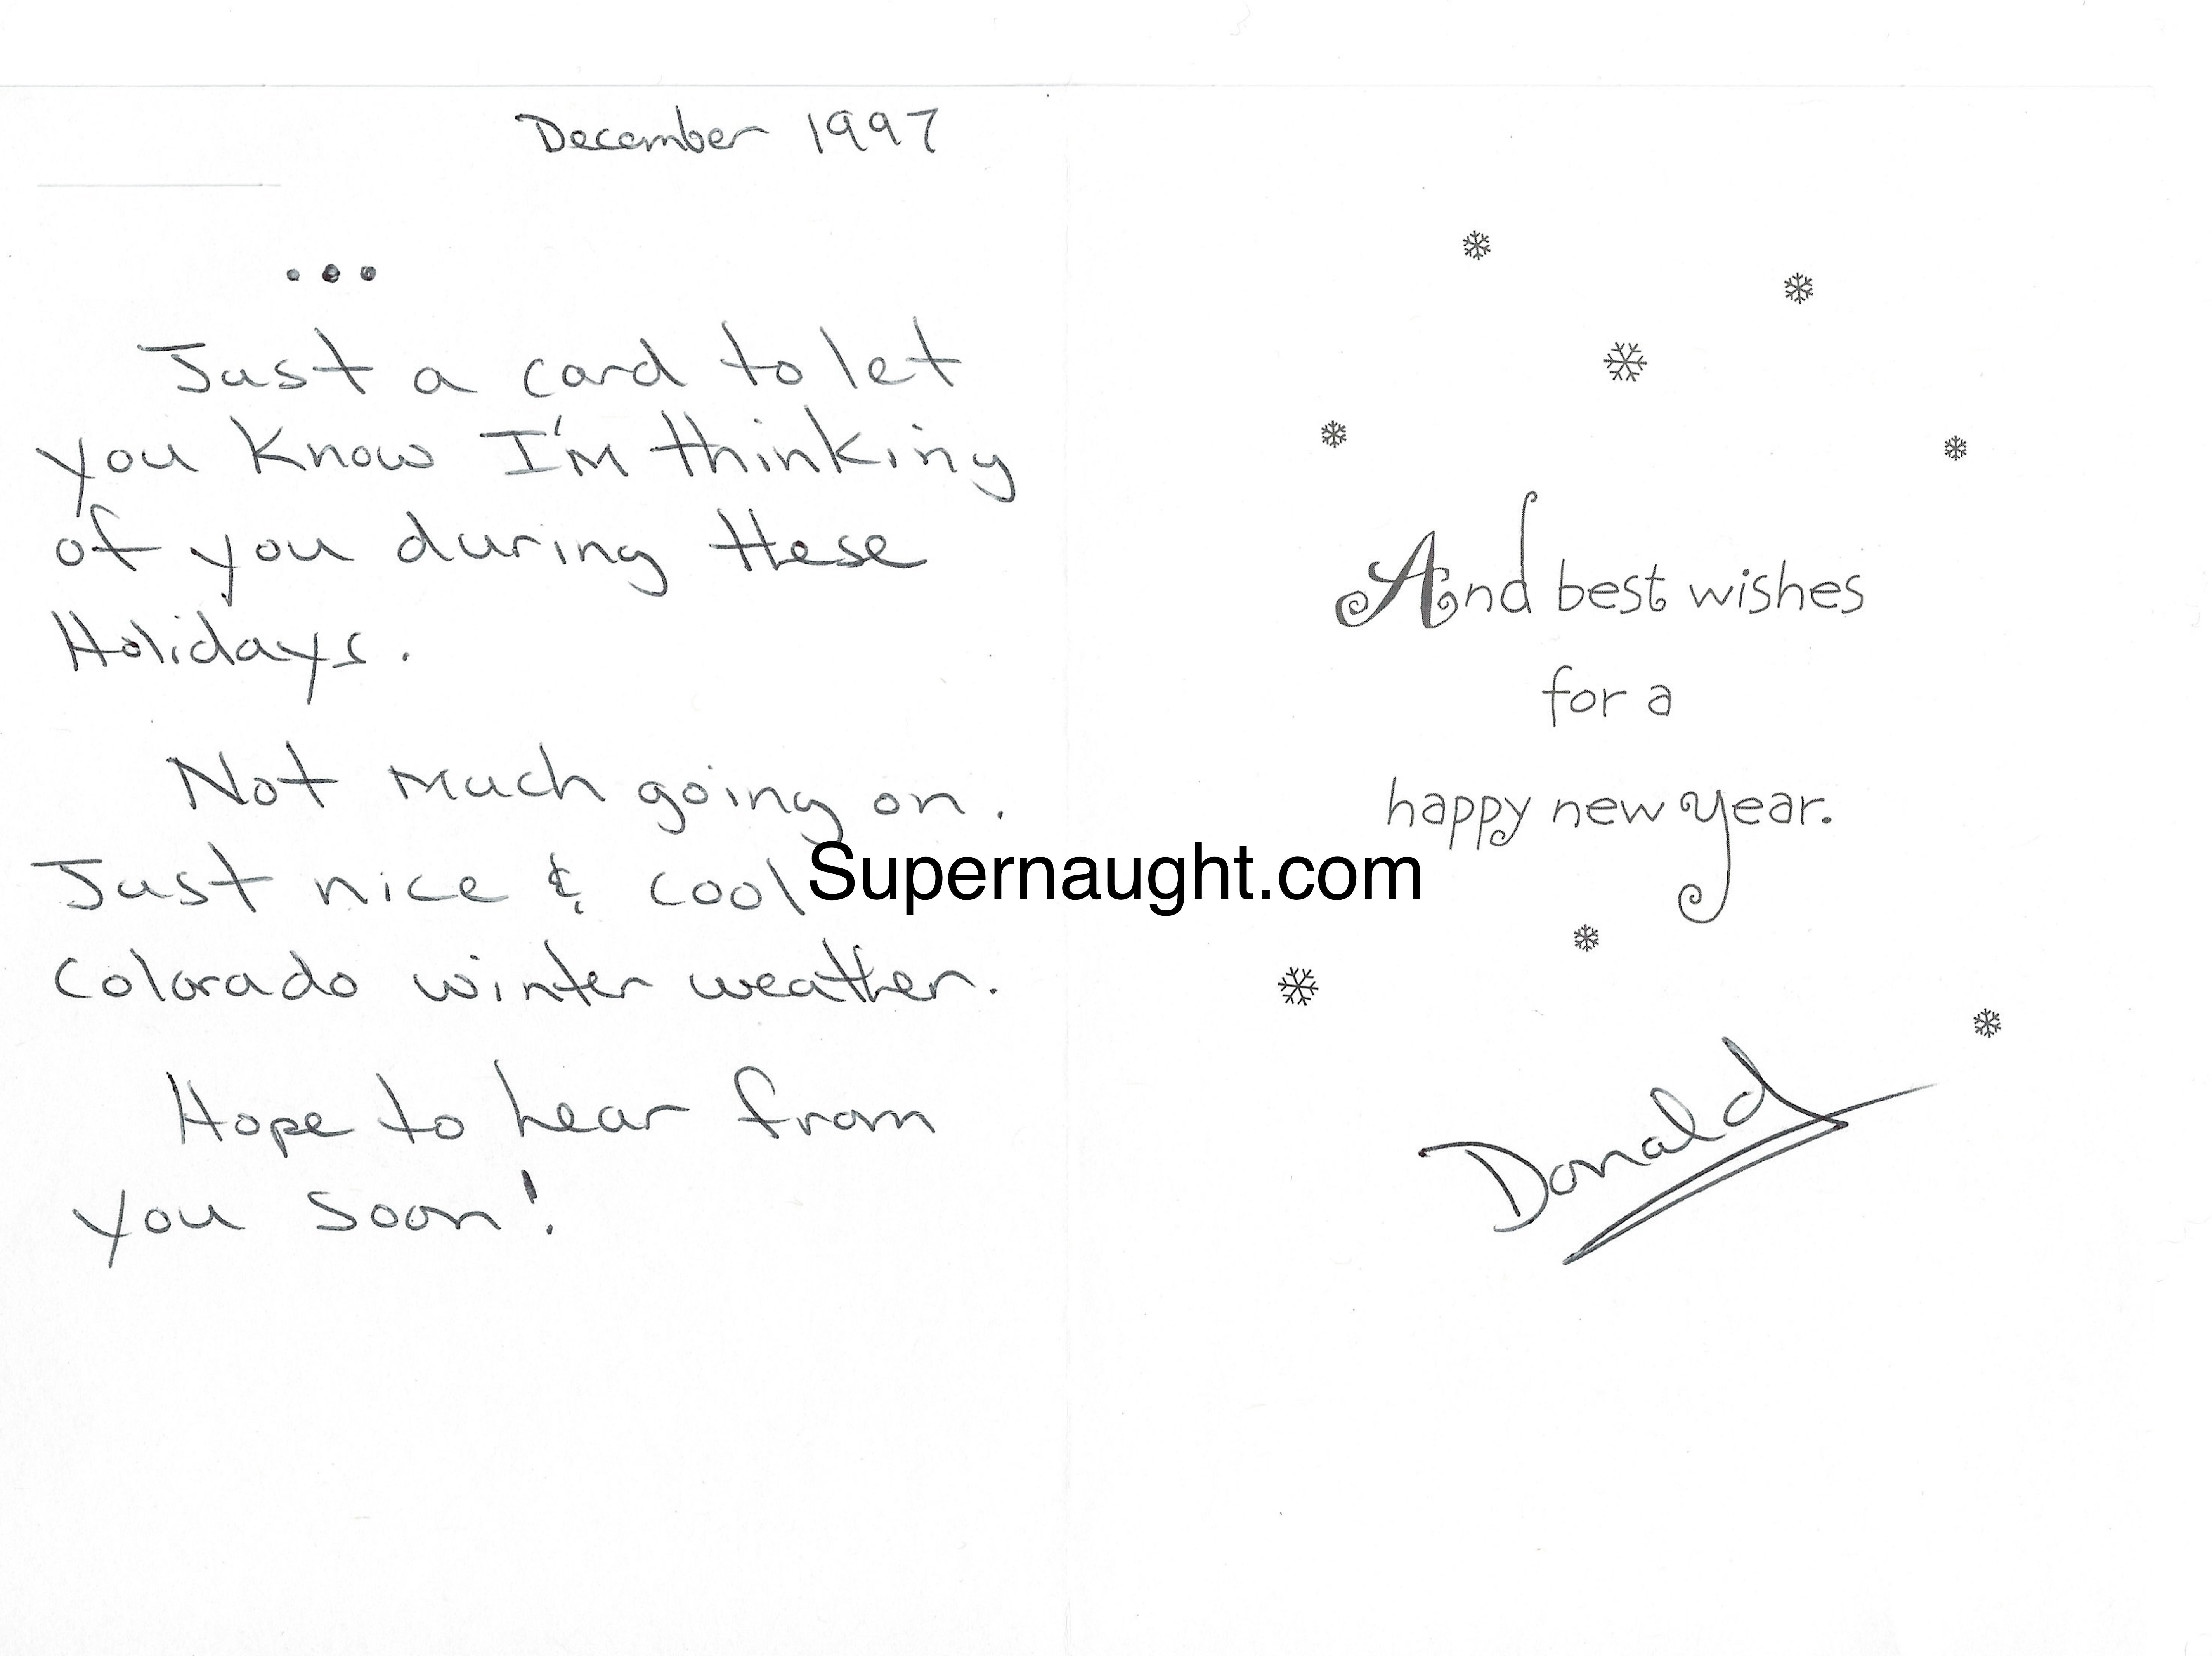 December 1997
...
Just a card to let
you know I'm thinking
of you during these
Holidays.
Not much going on.
Just nice & cool
Colorado winter weather.
Hope to hear from
you soon!
And best wishes
for a
happy new year.
Donald
Supernaught.com